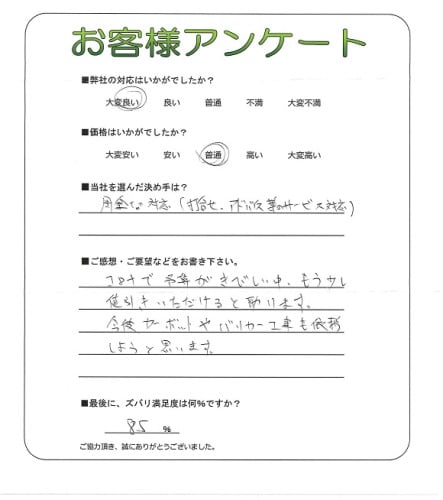 お客様アンケート
■弊社の対応はいかがでしたか?
大変良い 良い 普通 不満 大変不満
■価格はいかがでしたか?
大変安い 安い 普通 高い 大変高い
■当社を選んだ決め手は?
対応(打合せ、アドバイス等のサービス対応)
■ご感想・ご要望などをお書き下さい。
コロナで予算がきびしい中、もう少し
値引きいただけると助ります。
今後カーポットやバリカー工事も依頼
しようと思います。
■最後に、ズバリ満足度は何%ですか?
85 %
ご協力頂き、誠にありがとうございました。